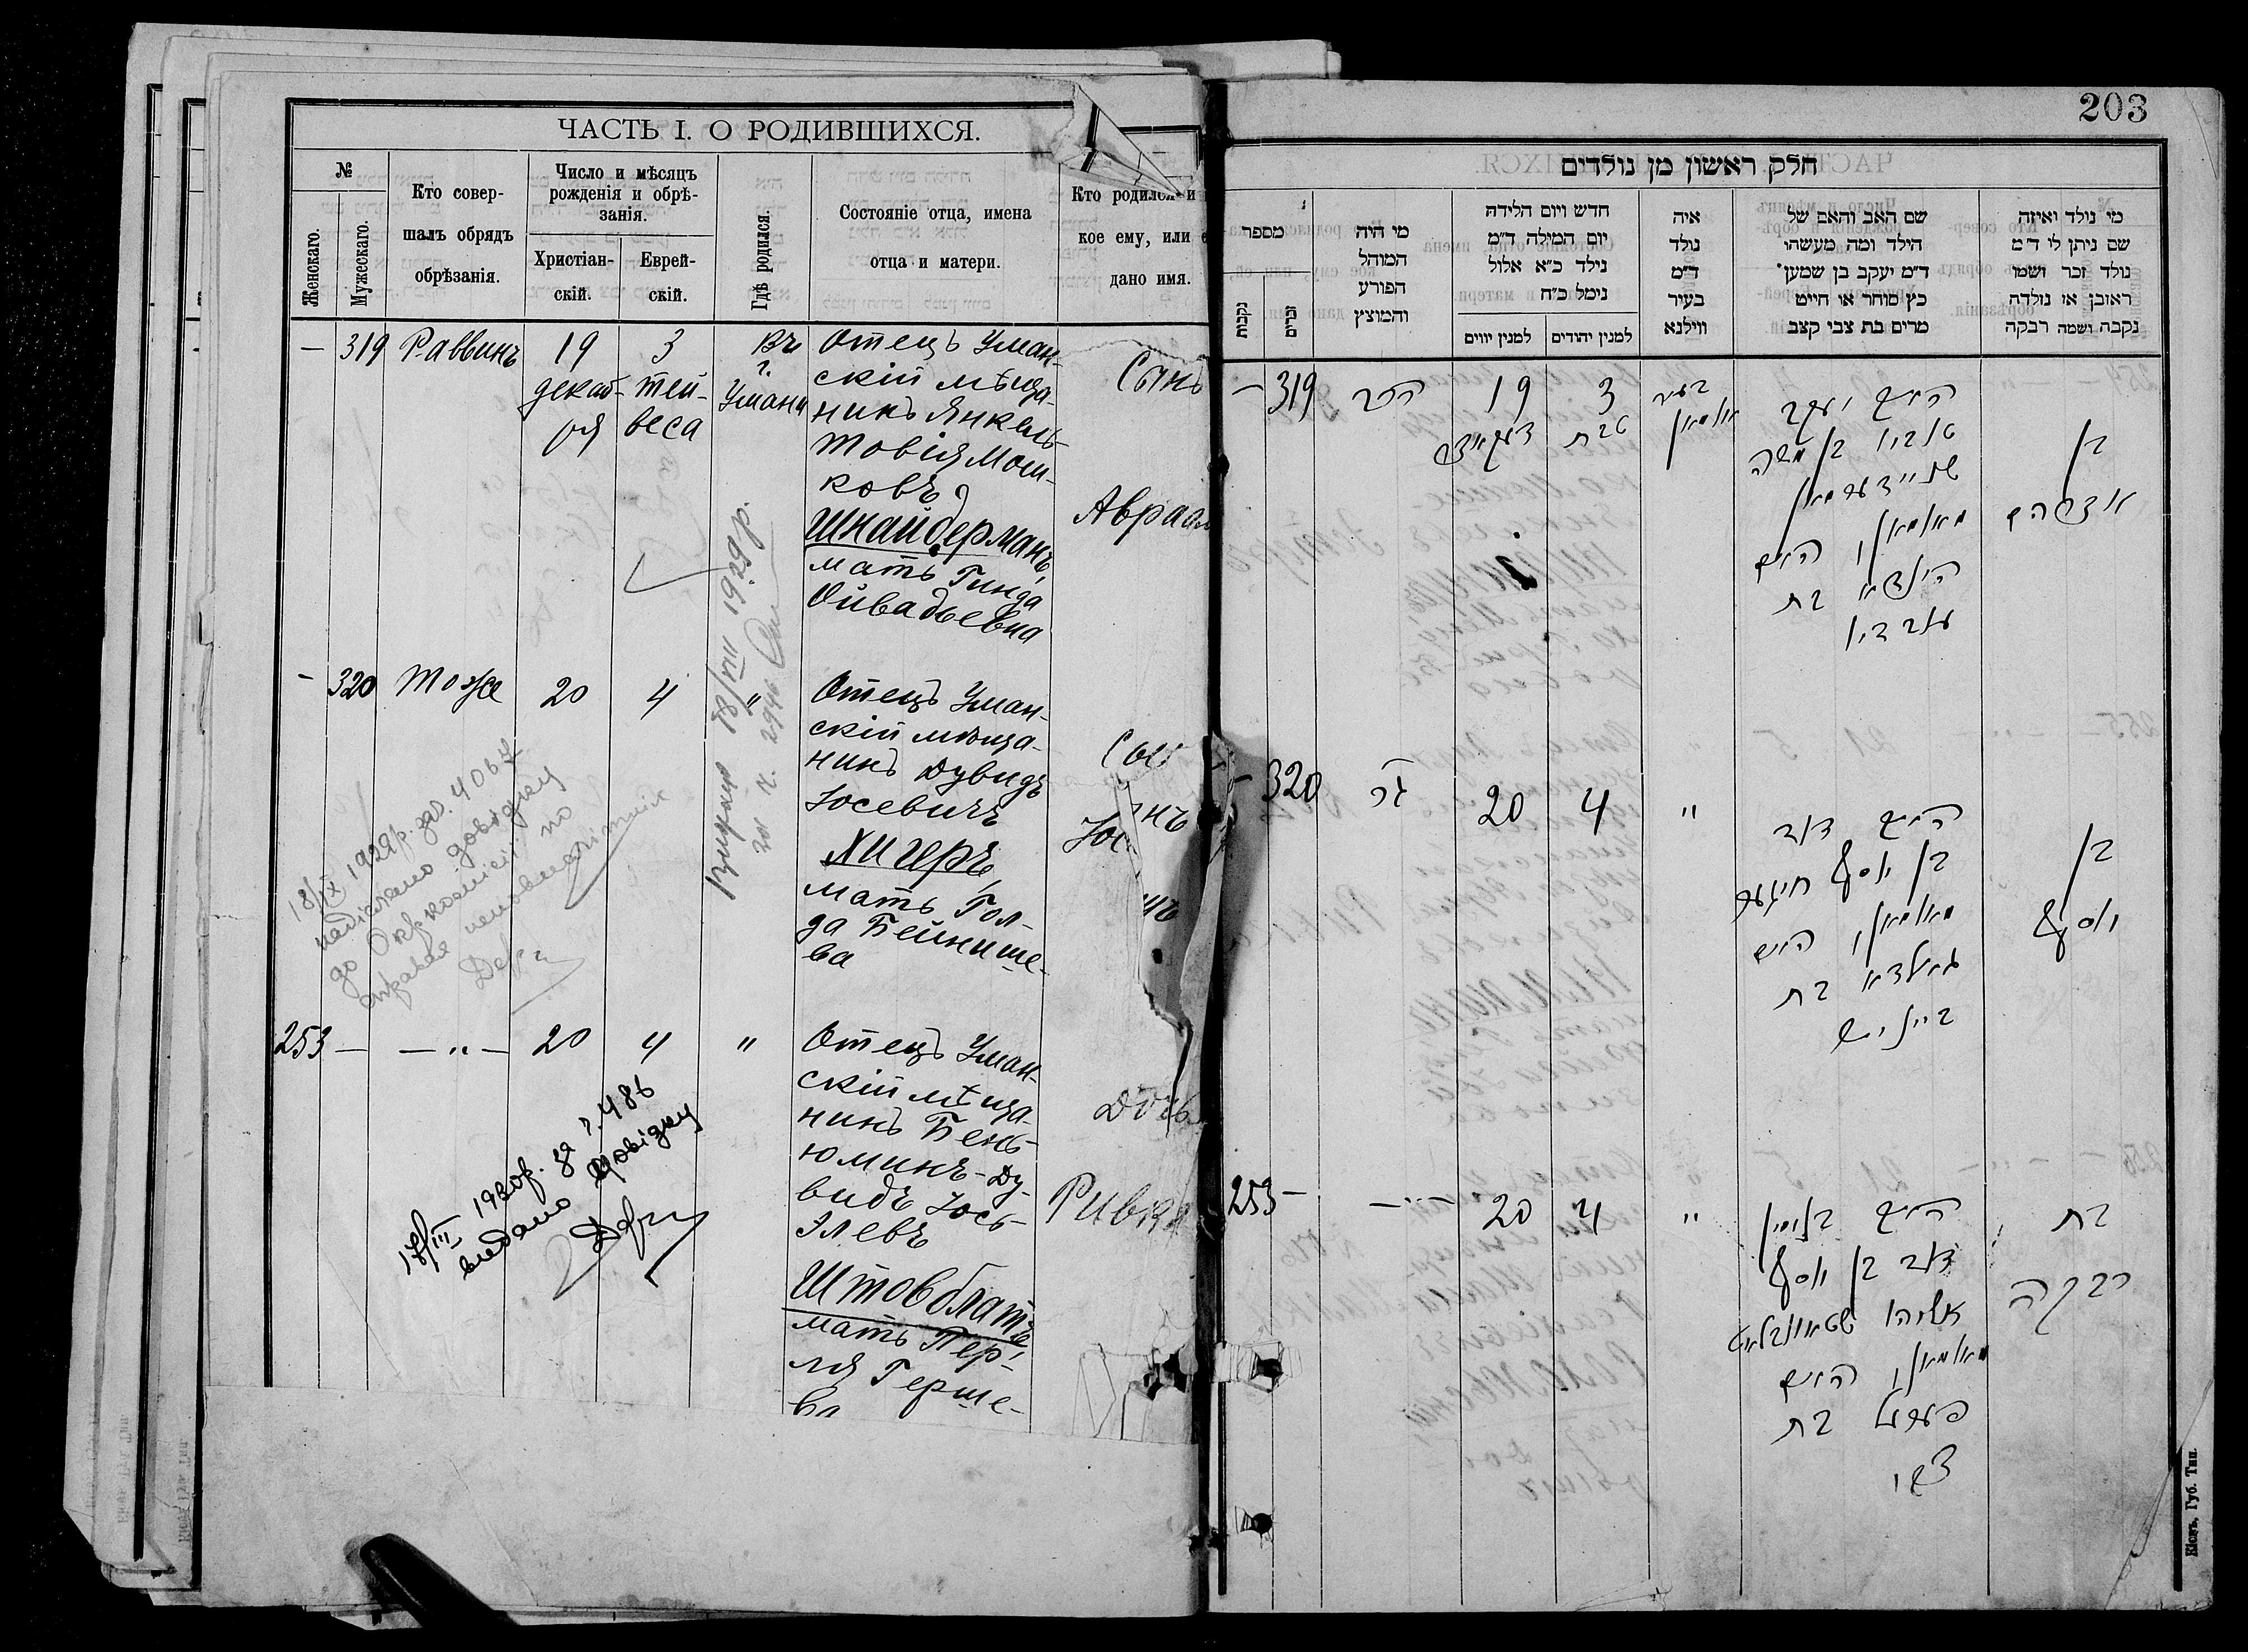 ЧАСТЬ I. О РОДИВШИХСЯ.
№
Женскаго.
Мужескаго.
Кто совер-
шалъ обрядъ
обрѣзанія.
Число и мѣсяцъ
рожденія и обрѣ-
занія.
Христіан-
скій.
Еврей-
скій.
Гдѣ родился.
Состояніе отца, имена
отца и матери.
Кто родился и
кое ему, или
дано имя.
— 319 Раввинъ 19 3 Въ
декаб- тей- г.
ря веса Умани
Отецъ Уман-
скій мѣща-
нинъ Янкель-
Товія Мош-
ковъ
Шнайдерманъ,
мать Гинда
Ойвадьевна
Сынъ
Авраам
— 320 Тоже 20 4 "
Отецъ Уман-
скій мѣща-
нинъ Дувидъ
Іосевичъ
Хигеръ,
мать Гол-
да Бейнише-
ва
Сы
Іос
253 — — " — 20 4 "
Отецъ Уман-
скій мѣща-
нинъ Бень-
юминъ-Ду-
видъ Іось-
Элевъ
Штовблатъ,
мать Пер-
ля Герше-
ва
Дочь
Ривка
18/VIII 1929р.
18/IX 1929р. за ч. 4067
надіслано довідку
до Окр
17/III 1930р. за ч. 486
видано довідку
203
חלק ראשון מן נולדים
מספר
נקבות
זכרים
מי היה
המוהל
הפורע
והמוצץ
חדש ויום הלידה
יום המילה ד"מ
נילד כ"א אלול
נימל כ"ח
למנין יווים
למנין יהודים
איה
נולד
ד"מ
בעיר
ווילנא
שם האב והאם של
הילד ומה מעשהו
ד"מ יעקב בן שמען
כץ סוחר או חייט
מרים בת צבי קצב
מי נולד ואיזה
שם ניתן לו ד"מ
נולד זכר ושמו
ראובן או נולדה
נקבה ושמה רבקה
— 319 הרב 19 3 בעיר
טבת אומאן
האיש יעקב
טוביו בן משה
שניידערמאן
מאומאן, האשה
הינדא בת
עובדיו
בן
אברהם
— 320 20 4 "
האיש דוד
בן יוסף חיגער
מאומאן, האשה
גאלדא בת
ביינוש
בן
יוסף
253 — — " — 20 4 "
האיש בנימין
דוד בן יוסף
אליהו שטאוובלאט
מאומאן, האשה
פערל בת
צבי
בת
רבקה
Кіевъ, Губ. Тип.